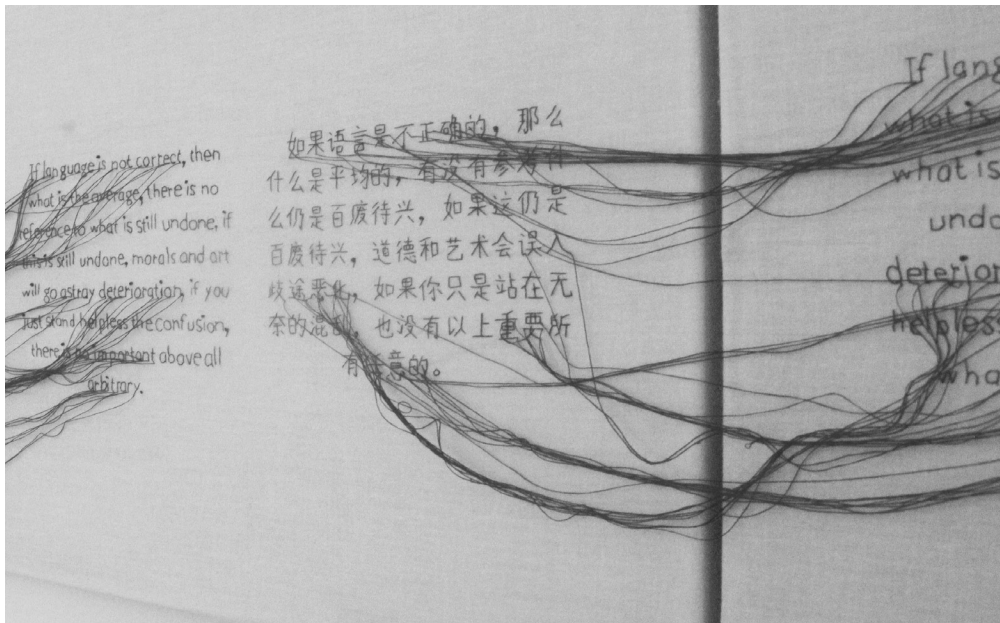 If language is not correct, then
what is the average, there is no
reference to what is still undone, if
this is still undone, morals and art
will go astray deterioration, if you
just stand helpless the confusion,
there is no important above all
arbitrary.
如果语言是不正确的，那么
什么是平均的，有没有参考什
么仍是百废待兴，如果这仍是
百废待兴，道德和艺术会误入
歧途恶化，如果你只是站在无
奈的混乱，也没有以上重要所
有任意的。
If lang
what is
what is
undo
deterior
helples
wha